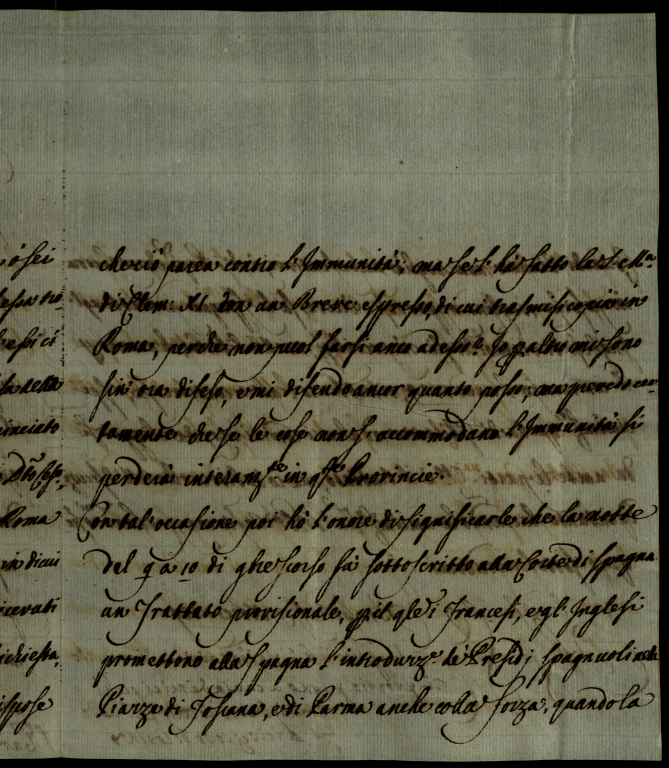 che ciò parea contro l'Immunità; ma se l'hà fatto la S. Mª.
di Clem: XI con un Breve espresso, di cui trasmisi copia in
Roma, perche non puol farsi anco adesso? Io p altro mi sono
sin' ora difeso, e mi difendo ancor quanto posso; ma prevedo cer-
tamente che se le cose non si accommodano l'Immunità si
perderà interamte in qste Provincie.
Con tal' occasione poi hò l'onore di significarle che la notte
del 9 a 10 di qto scorso fù sottoscritto alla Corte di Spagna
un Trattato provisionale, p il qle i Francesi, e gl' Inglesi
promettono alla Spagna l'introduzze de Presidj Spagnuoli nelle
Piazze di Toscana, e di Parma anche colla forza, quando la
ò sei
essi ci
la della
Roma
in di cui
icerati
ichiesta,
ispose